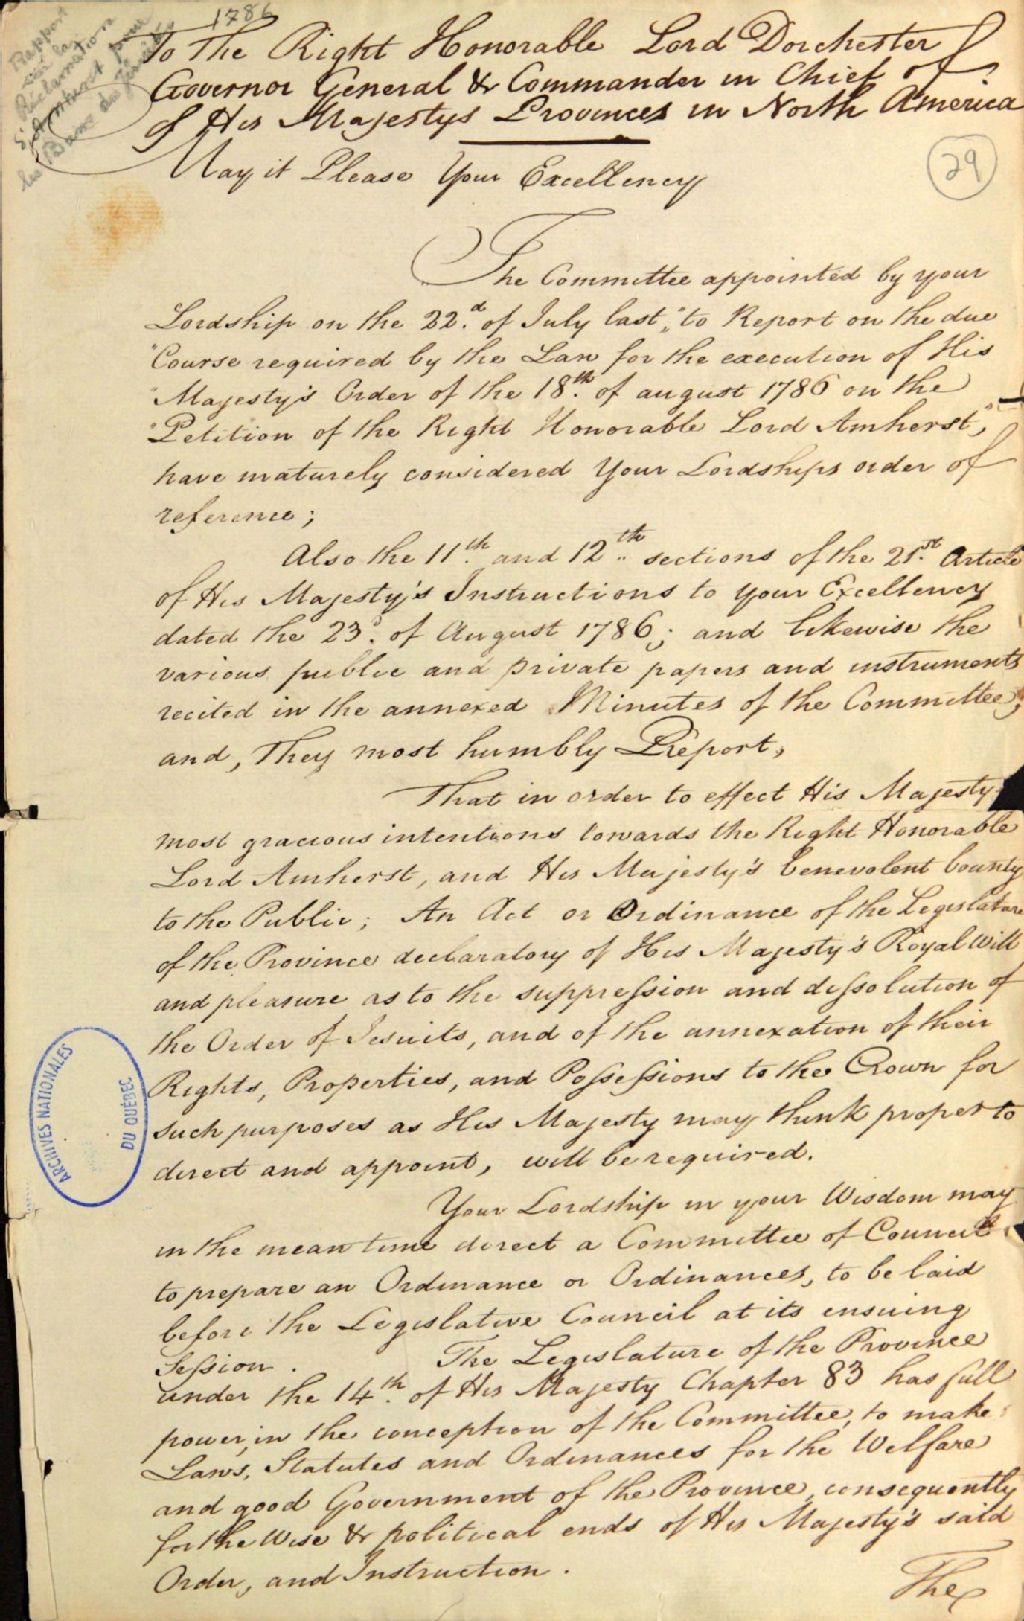 1786
Rapport
sur la
Réclamation
Amherst pour
les Biens des Jésuites
To The Right Honorable Lord Dorchester
Governor General & Commander in Chief of
of His Majestys Provinces in North America
29
May it Please Your Excellency
The Committee appointed by your
Lordship on the 22.d of July last, "to Report on the due
"Course required by the Law for the execution of His
"Majesty's Order of the 18.th of august 1786 on the
"Petition of the Right Honorable Lord Amherst",
have maturely considered Your Lordships order of
reference;
Also the 11.th and 12.th sections of the 21.st Article
of His Majesty's Instructions to your Excellency
dated the 23.d of August 1786; and likewise the
various public and private papers and instruments
recited in the annexed Minutes of the Committee;
and, They most humbly Report,
That in order to effect His Majesty
most gracious intentions towards the Right Honorable
Lord Amherst, and His Majesty's benevolent bounty
to the Public; An Act or Ordinance of the Legislature
of the Province declaratory of His Majesty's Royal Will
and pleasure as to the suppression and dissolution of
the Order of Jesuits, and of the annexation of their
Rights, Properties, and Possessions to the Crown for
such purposes as His Majesty may think proper to
direct and appoint, will be required.
Your Lordship in your Wisdom may
in the mean time direct a Committee of Council
to prepare an Ordinance or Ordinances, to be laid
before the Legislative Council at its ensuing
Session. The Legislature of the Province
under the 14.th of His Majesty Chapter 83 has full
power, in the conception of the Committee, to make
Laws, Statutes and Ordinances for the Welfare
and good Government of the Province, consequently
for the Wise & political ends of His Majesty's said
Order, and Instruction.
The
ARCHIVES NATIONALES
DU QUÉBEC